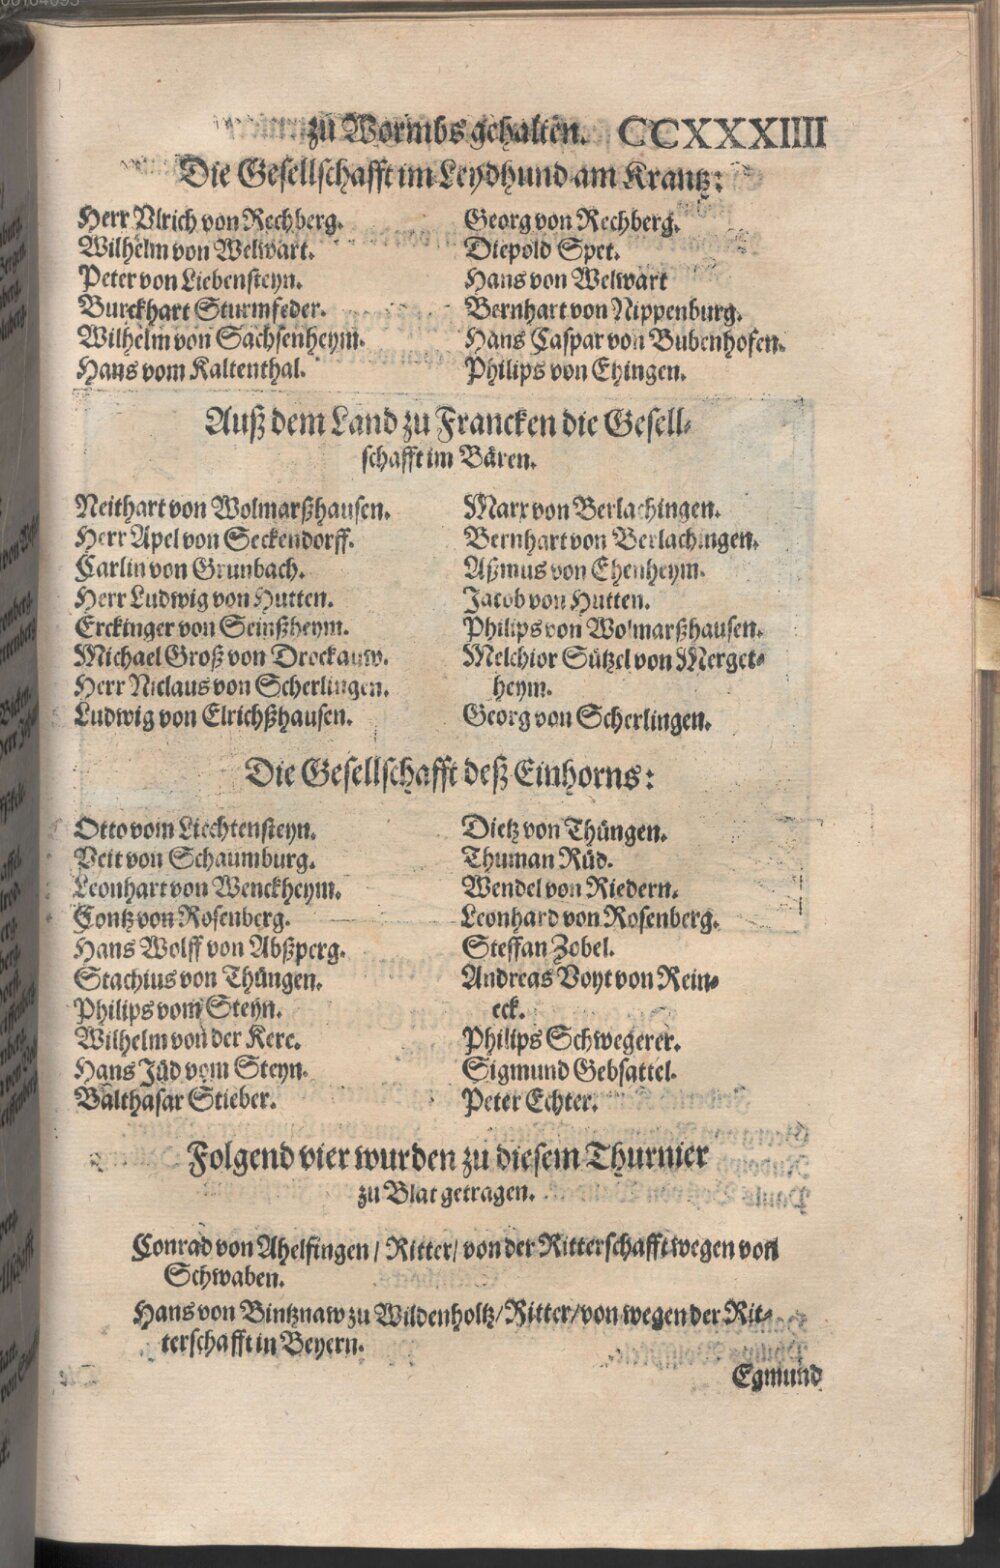 zu Wormbs gehalten. CCXXXIIII
Die Gesellschafft im Leydhund am Krantz:
Herr Vlrich von Rechberg.
Wilhelm von Welwart.
Peter von Liebensteyn.
Burckhart Sturmfeder.
Wilhelm von Sachsenheym.
Hans vom Kaltenthal.
Georg von Rechberg.
Diepold Spet.
Hans von Welwart
Bernhart von Nippenburg.
Hans Caspar von Bubenhofen.
Philips von Ehingen.
Auß dem Land zu Francken die Gesell-
schafft im Bären.
Neithart von Wolmarßhausen.
Herr Apel von Seckendorff.
Carlin von Grunbach.
Herr Ludwig von Hutten.
Erckinger von Seinßheym.
Michael Groß von Trockauw.
Herr Niclaus von Scherlingen.
Ludwig von Elrichßhausen.
Marx von Berlachingen.
Bernhart von Berlachingen.
Aßmus von Ehenheym.
Jacob von Hutten.
Philips von Wolmarßhausen.
Melchior Sützel von Merget-
heym.
Georg von Scherlingen.
Die Gesellschafft deß Einhorns:
Otto vom Liechtensteyn.
Veit von Schaumburg.
Leonhart von Wenckheym.
Contz von Rosenberg.
Hans Wolff von Abßperg.
Stachius von Thüngen.
Philips vom Steyn.
Wilhelm von der Kere.
Hans Jüd vom Steyn.
Balthasar Stieber.
Dietz von Thüngen.
Thuman Rüd.
Wendel von Riedern.
Leonhard von Rosenberg.
Steffan Zobel.
Andreas Voyt von Rein-
eck.
Philips Schwegerer.
Sigmund Gebsattel.
Peter Echter.
Folgend vier wurden zu diesem Thurnier
zu Blat getragen.
Conrad von Ahelfingen / Ritter / von der Ritterschafft wegen von
Schwaben.
Hans von Bintznaw zu Wildenholtz / Ritter / von wegen der Rit-
terschafft in Beyern.
Egmund